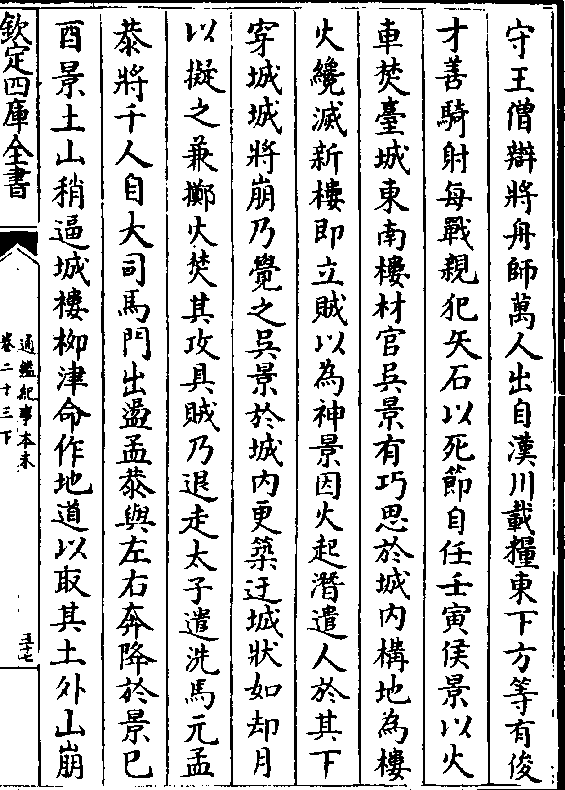 守王僧辯將舟師萬人出自漢川載糧東下方等有俊
才善騎射每戰親犯矢石以死節自任壬寅侯景以火
車焚臺城東南樓材官吳景有巧思於城内構地為樓
火纔滅新樓即立賊以為神景因火起潛遣人於其下
穿城城將崩乃覺之吳景於城内更築迂城狀如却月
以擬之兼擲火焚其攻具賊乃退走太子遣洗馬元孟
恭將千人自大司馬門出盪孟恭與左右奔降於景已
酉景土山稍逼城樓柳津命作地道以取其土外山崩
欽定四庫全書
通鑑紀事本末
卷二十三下
五十七